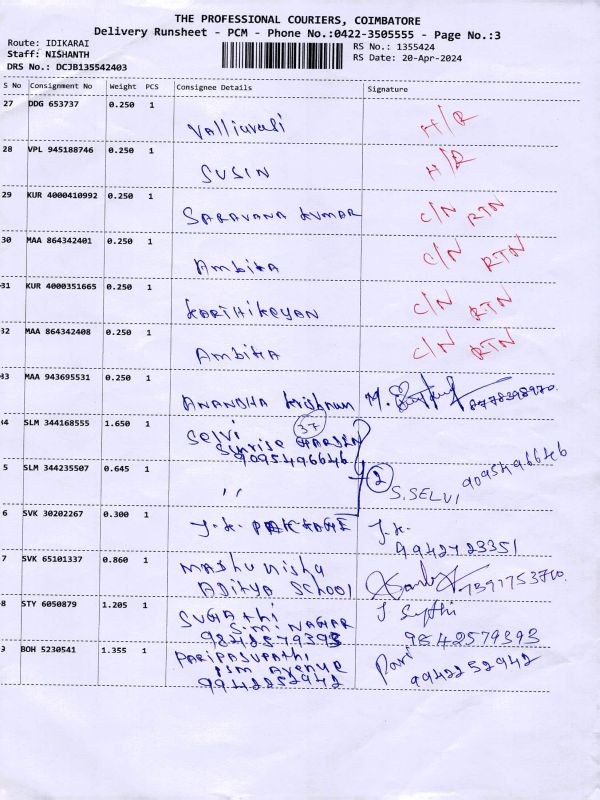 THE PROFESSIONAL COURIERS, COIMBATORE
Delivery Runsheet - PCM - Phone No.:0422-3505555 - Page No.:3
Route: IDIKARAI
RS No.: 1355424
Staff: NISHANTH
RS Date: 20-Apr-2024
DRS No.: DCJB135542403
S No Consignment No Weight PCS Consignee Details Signature
27 DDG 653737 0.250 1
Valliarasi H/R
28 VPL 945188746 0.250 1
SUSIN H/R
29 KUR 4000410992 0.250 1
SARAVANA KUMAR C/N RTN
30 MAA 864342401 0.250 1
Ambika C/N RTN
31 KUR 4000351665 0.250 1
KARTHIKEYAN C/N RTN
32 MAA 864342408 0.250 1
Ambika C/N RTN
33 MAA 943695531 0.250 1
ANANDHA Krishnan M. 8778398970.
4 SLM 344168555 1.650 1
Selvi 37
Sunrise GARDEN
9095496646
5 SLM 344235507 0.645 1
,, 2 S.SELVI 9095496646
6 SVK 30202267 0.300 1
J.K. J.K.
9942423351
7 SVK 65101337 0.860 1
MADHU nisha
ADITYA School 7391753710.
8 STY 6050879 1.205 1
SUGATHI
S.M. NAGAR
9842579393 9842579393
9 BOH 5230541 1.355 1
PARIPASUPATHI Pari
PSM Avenue
9942252942 9942252942